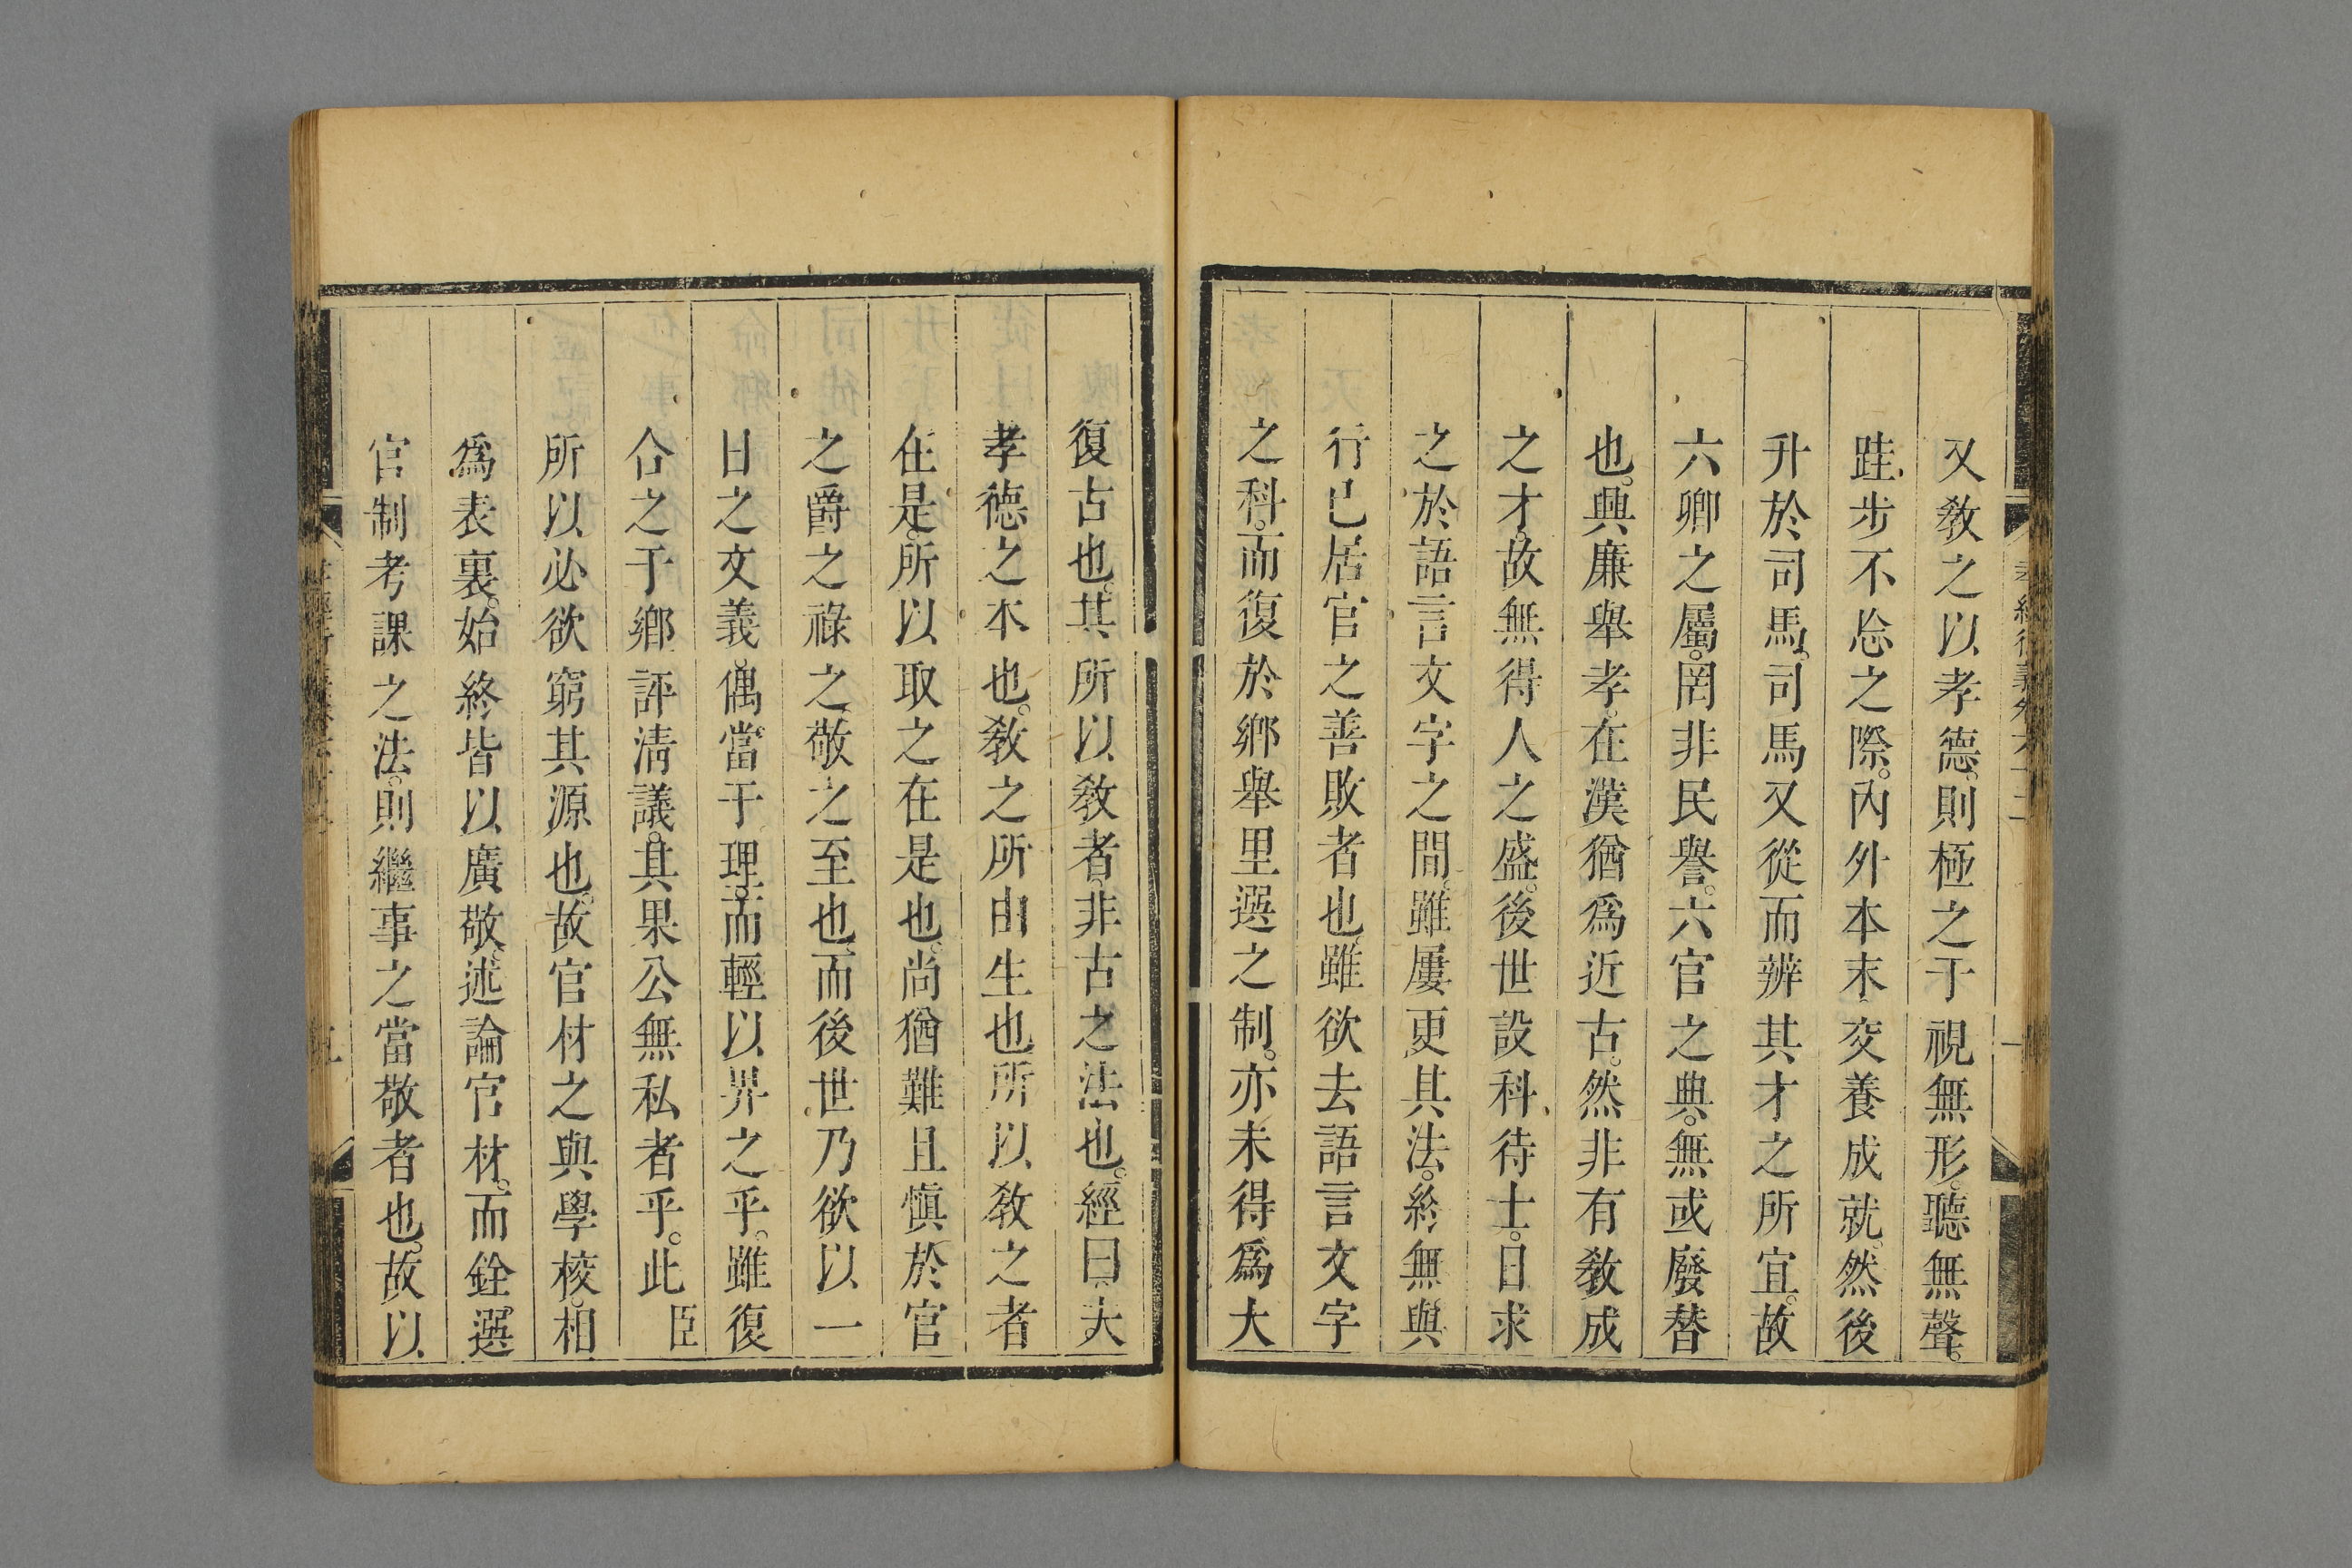 又敎之以孝德。則極之于視無形。聽無聲。
跬步不忘之際。內外本末交養成就。然後
升於司馬。司馬又從而辨其才之所宜。故
六卿之屬。罔非民譽。六官之典。無或廢替
也。興廉舉孝。在漢猶爲近古。然非有敎成
之才。故無得人之盛。後世設科待士。日求
之於語言文字之間。雖屢更其法。終無與
行已居官之善敗者也。雖欲去語言文字
之科。而復於鄉舉里選之制。亦未得爲大
復古也。其所以敎者。非古之法也。經曰。夫
孝德之本也。敎之所由生也。所以敎之者
在是。所以取之在是也。尚猶難且愼於官
之爵之祿之。敬之至也。而後世乃欲以一
日之文義。偶當于理。而輕以畀之乎。雖復
合之于鄉評淸議。其果公無私者乎。此臣
所以必欲窮其源也。故官材之與學校。相
爲表裏。始終皆以廣敬。述論官材。而銓選
官制考課之法。則繼事之當敬者也。故以